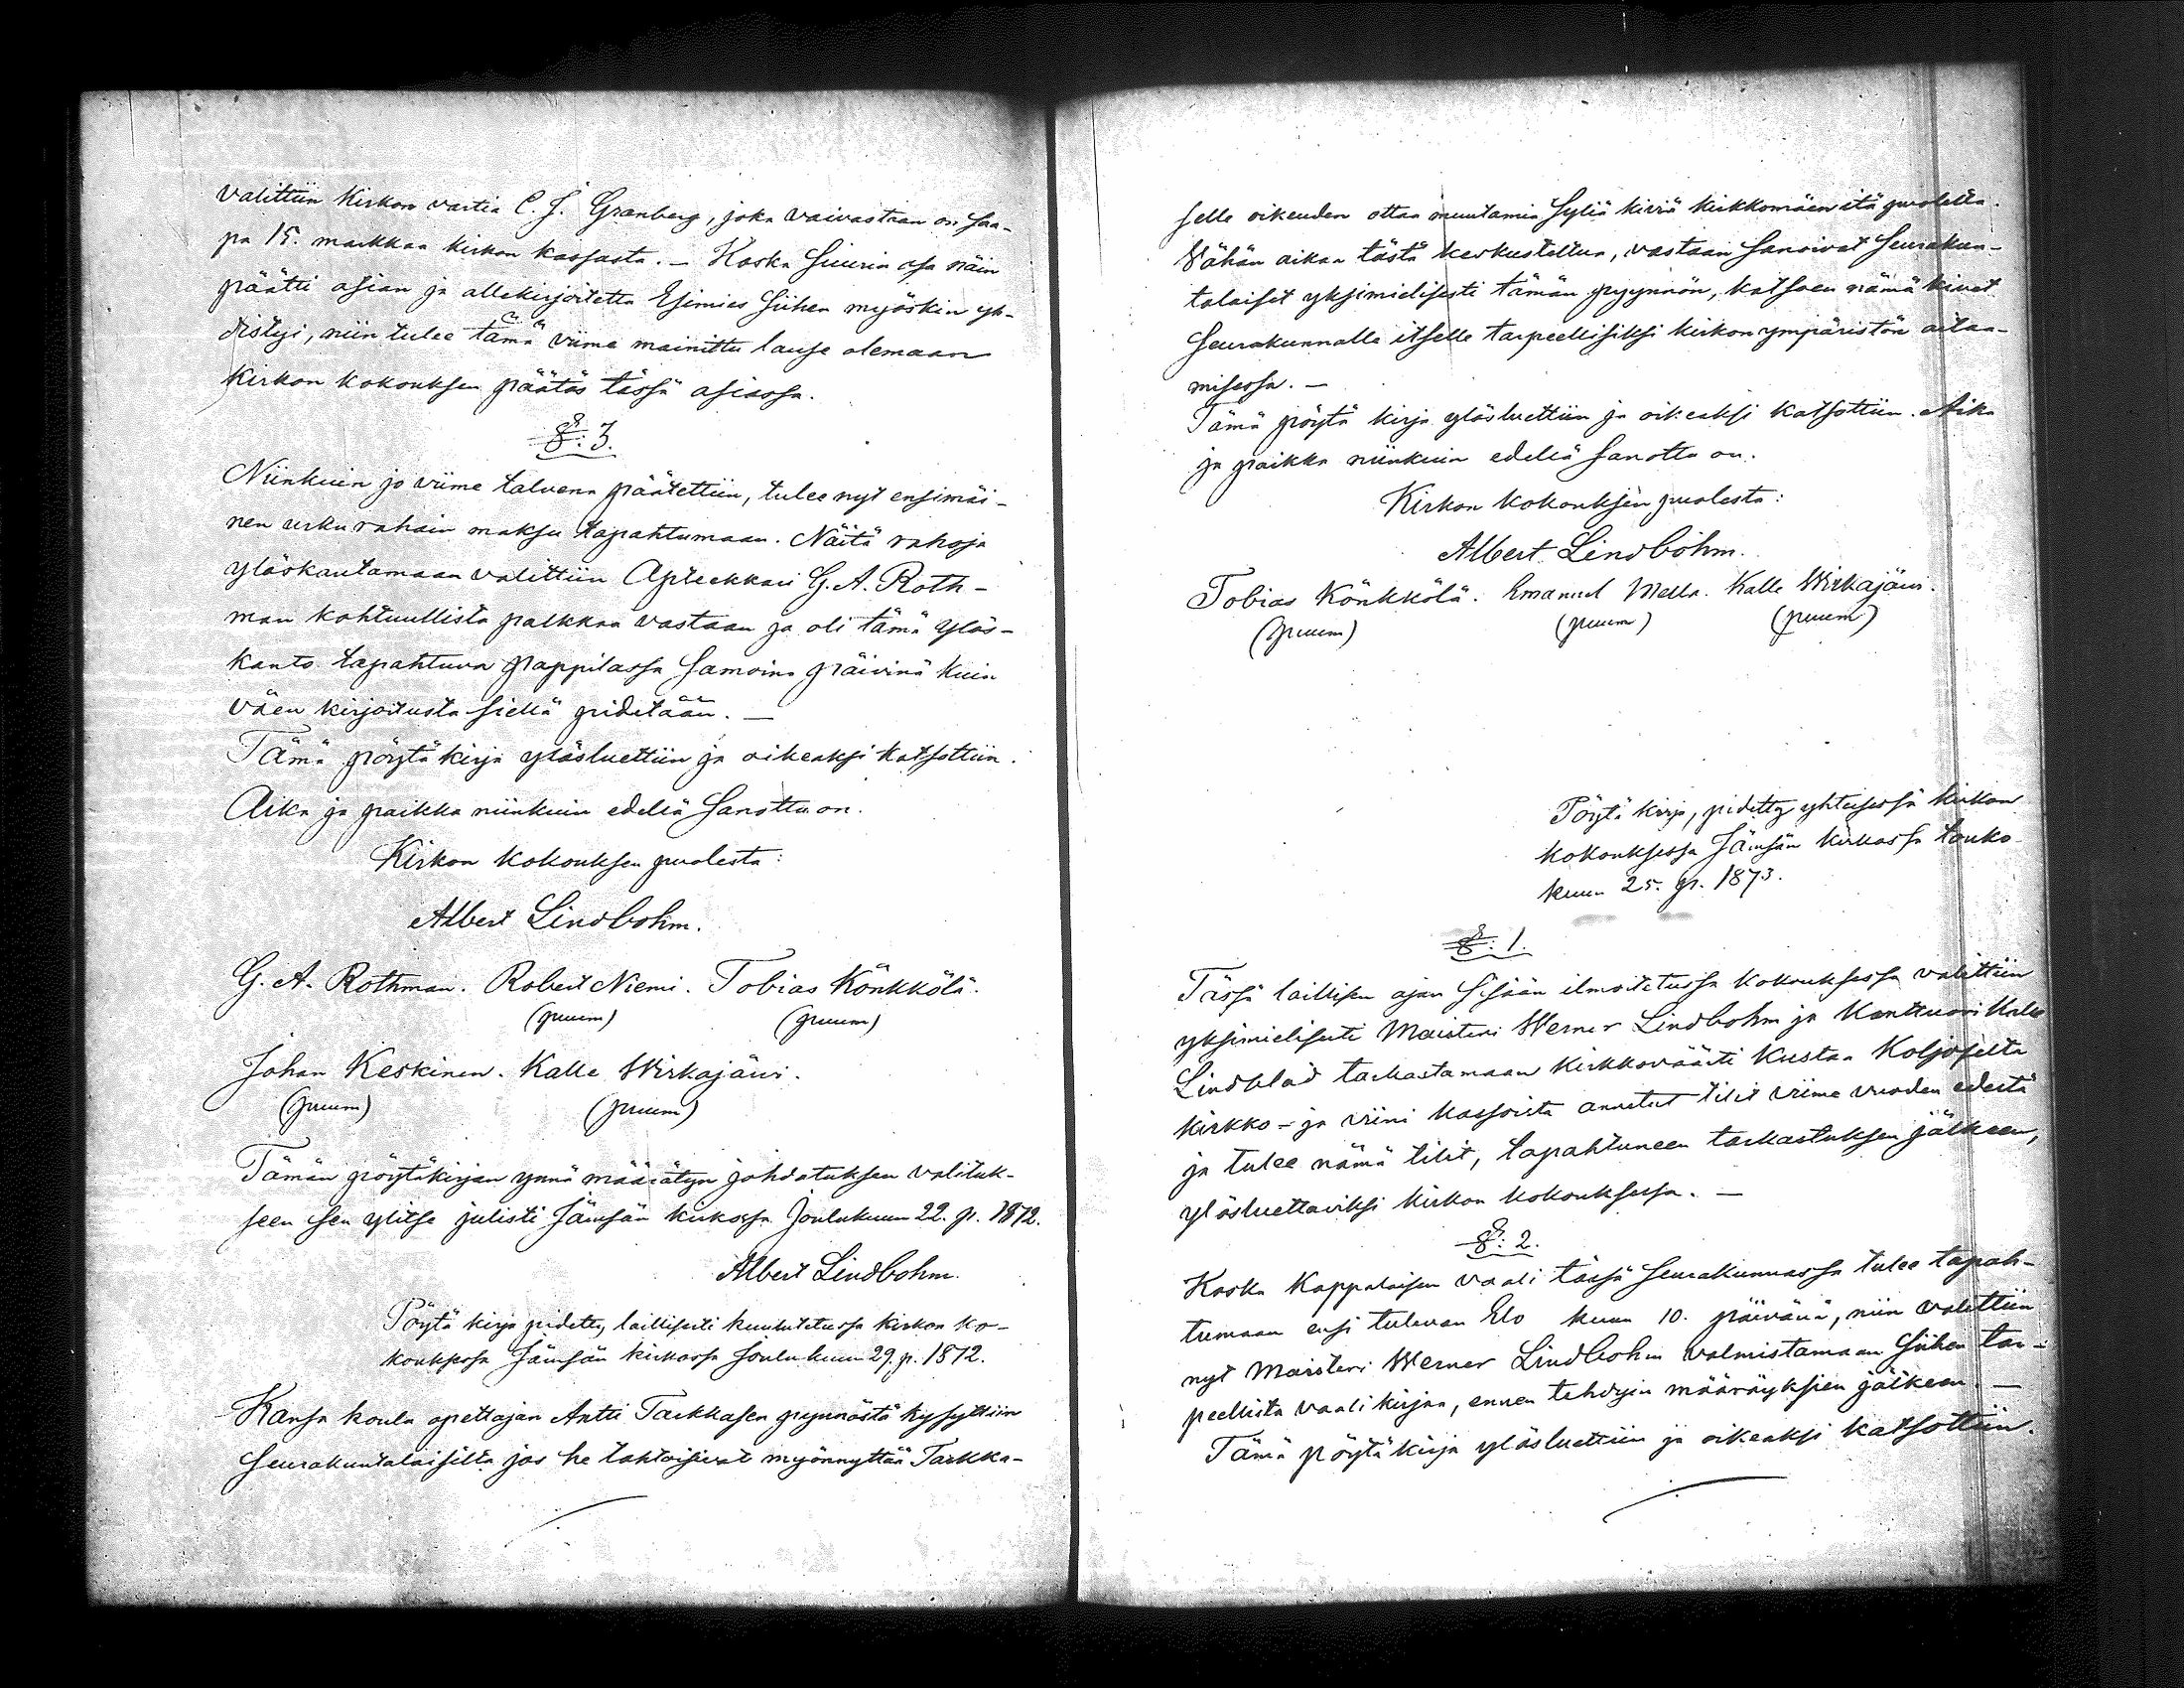 valittiin Kirkon vartia C. J. Granberg, joka vaivastaan on saa-
pa 15. markkaa kirkon kassasta. — Koska suurin osa näin
päätti asian ja allekirjoitettu Esimies siihen myöskin yh-
distyi, niin tulee tämä viime mainittu lause olemaan
Kirkon kokouksen päätös tässä asiassa.
§: 3.
Niinkuin jo viime talvena päätettiin, tulee nyt ensimäi-
nen urku rahain maksu tapahtumaan. Näitä rahoja
ylöskantamaan valittiin Apteekkari G. A. Roth-
man kohtuullista palkkaa vastaan ja oli tämä ylös-
kanto tapahtuva pappilassa samoina päivinä kuin
väen kirjoitusta siellä pidetään. —
Tämä pöytäkirja ylösluettiin ja oikeaksi katsottiin.
Aika ja paikka niinkuin edellä sanottu on.
Kirkon kokouksen puolesta:
Albert Lindbohm.
G. A. Rothman. Robert Niemi. Tobias Könkkölä.
(puum) (puum)
Johan Keskinen. Kalle Wirkajärvi.
(puum) (puum)
Tämän pöytäkirjan ynnä määrätyn johdatuksen valituk-
seen sen ylitse julisti Jämsän kirkossa Joulukuun 22. p. 1872.
Albert Lindbohm.
Pöytä kirja pidetty laillisesti kuulutetussa kirkon ko-
kouksessa Jämsän kirkossa Joulukuun 29. p. 1872.
Kansa koulu opettajan Antti Tarkkasen pyynnöstä kysyttiin
Seurakuntalaisilta jos he tahtoisivat myönnyttää Tarkka-
selle oikeuden ottaa muutamia syliä kiviä kirkkomäen itä puolelta.
Vähän aikaa tästä keskusteltua, vastaan sanoivat Seurakun-
talaiset yksimielisesti tämän pyynnön, katsoen nämä kivet
Seurakunnalle itselle tarpeellisiksi kirkon ympäristön aitaa-
misessa. —
Tämä pöytä kirja ylösluettiin ja oikeaksi katsottiin. Aika
ja paikka niinkuin edellä sanottu on.
Kirkon kokouksen puolesta:
Albert Lindbohm.
Tobias Könkkölä. Emanuel Mella. Kalle Wirkajärvi.
(puum) (puum) (puum)
Pöytä kirja, pidetty yhteisessä kirkon
kokouksessa Jämsän kirkossa touko-
kuun 25. p. 1873.
§: 1.
Tässä laillisen ajan sisään ilmoitetussa kokouksessa valittiin
yksimielisesti Maisteri Werner Lindbohm ja Kanttuori Kalle
Lindblad tarkastamaan Kirkkoväärti Kustaa Koljoselta
kirkko- ja viini kassoista annetut tilit viime vuoden edestä
ja tulee nämä tilit, tapahtuneen tarkastuksen jälkeen,
ylösluettaviksi kirkon kokouksessa. —
§: 2.
Koska Kappalaisen vaali tässä seurakunnassa tulee tapah-
tumaan ensi tulevan Elo kuun 10. päivänä, niin valittiin
nyt Maisteri Werner Lindbohm valmistamaan siihen tar-
peellista vaalikirjaa, ennen tehdyin määräyksien jälkeen. —
Tämä pöytäkirja ylösluettiin ja oikeaksi katsottiin.